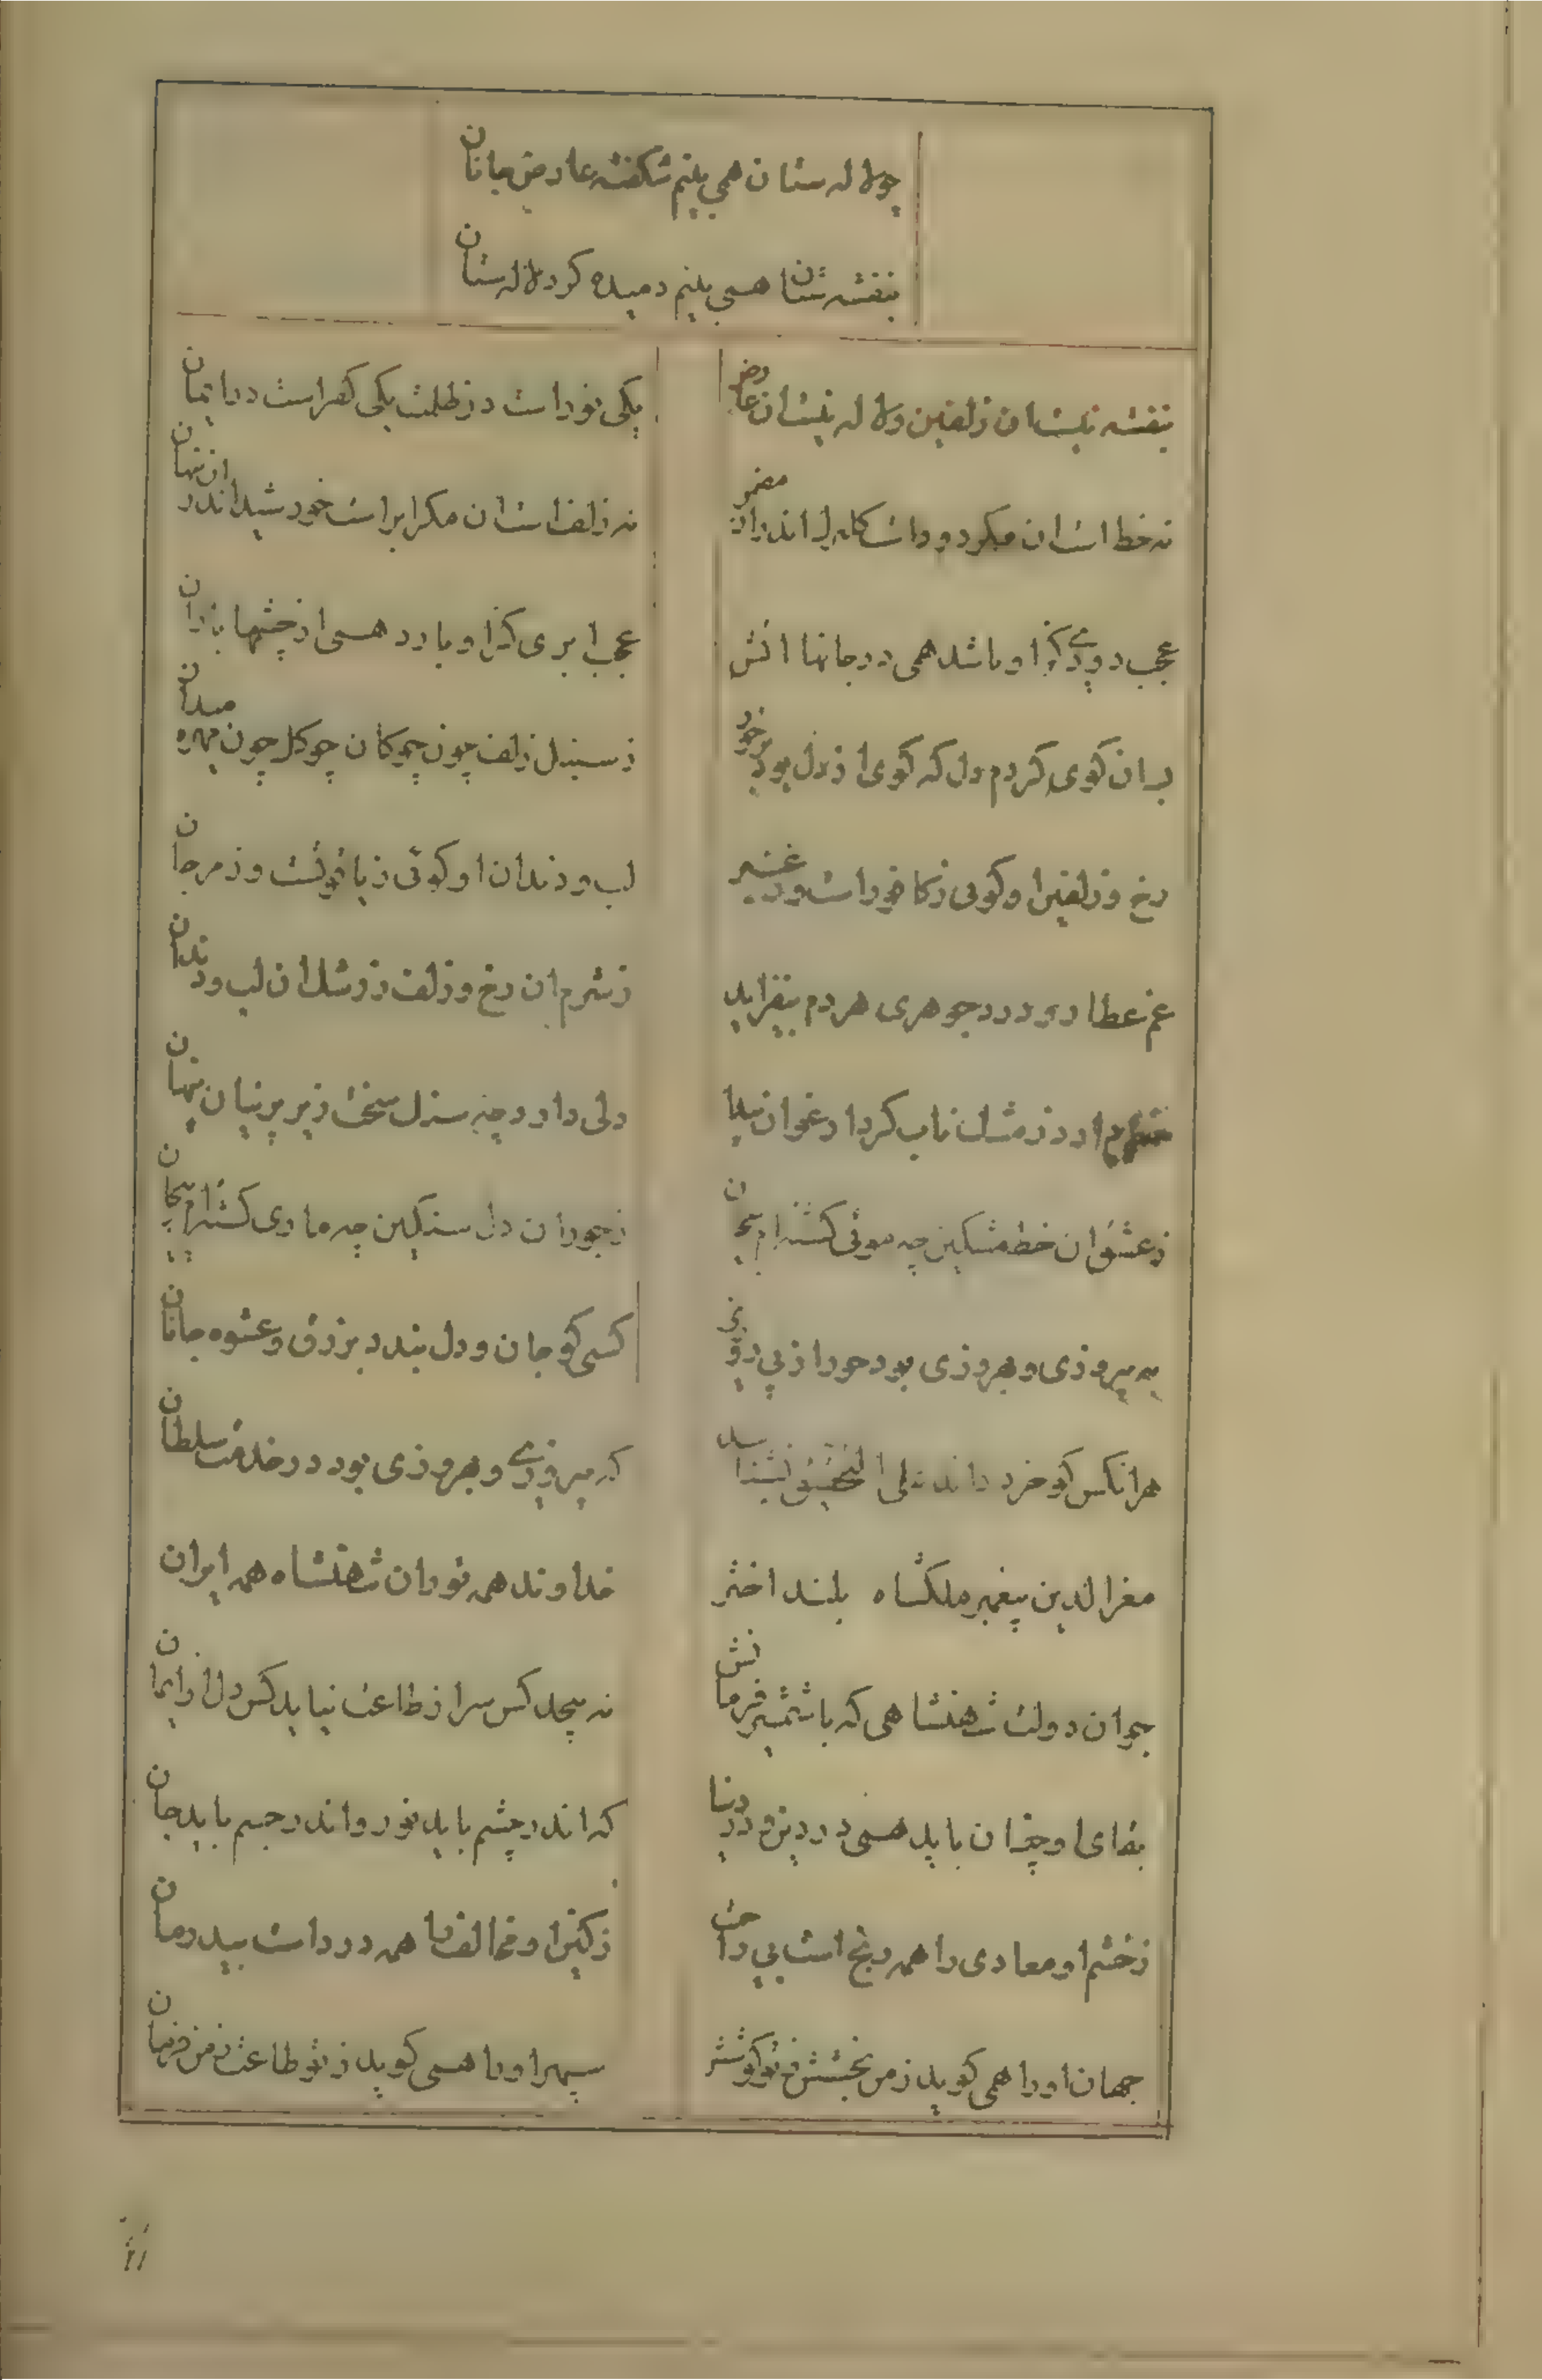 چو لاله ستان همی بینم شکفته عارض جانان
بنفشه ستان همی بینم دمیده کرد لاله ستان
بنفشه نیست ان زلفین و لاله نیست ان عارض
یکی نور است در ظلمت یکی کفر است در ایمان
نه خط است ان مکر دود است کاندر
نه زلف است ان مکر ابر است خورشید اندر ان پنهان
عجب دودی کز او باشد همی در جانها اتش
عجب ابری کز او بارد همی از چشمها باران
بدان کوی کردم دل که کوی از دل بود
ز سنبل زلف چون چوکان چو کل چون میدان
رخ و زلفین او کویی ز کافور است و عنبر
لب و دندان او کوئی ز یاقوتست و ز مرجان
غم عطار و درد جوهری هر دم بیفزاید
ز شرم ان رخ و زلف و ز رشک ان لب و دندان
دارد ز مشک ناب کرد ارغوان پیدا
دلی دارد چه سنک سخت زیر پرنیان پنهان
ز عشق ان خط مشکین چه موئی کشته ام پیچان
ز جور ان دل سنکین چه ماری کشته ام پیچان
به پیروزی و بهروزی بود جور از پی
کسی کو جان و دل بندد بزرق و عشوه جانان
هر انکس کو خرد داند علی التحقیق بشناسد
که پیروزی و بهروزی بود در خدمت سلطان
معزالدین پیغمبر ملکشاه بلند اختر
خداوند همه توران شهنشاه همه ایران
جوان دولت شهنشاهی که با شمشیر فرمانش
نه پیچد کس سر از طاعت نیابد کس دل از ایمان
بقای او چنان باید همی در دین و در دنیا
که اندر چشم باید نور و اندر جسم باید جان
ز خشم او معادی را همه رنج است بی راحت
ز کین او مخالف را همه درد است بیدرمان
جهان او را همی کوید ز من بخشش ز تو کوشش
سپهر او را همی کوید ز تو طاعت ز من فرمان